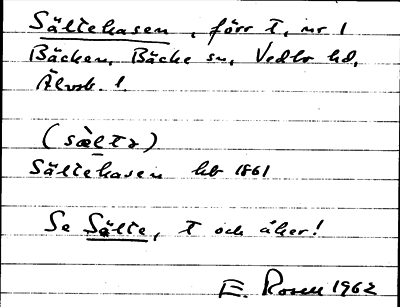 Sältehasen, förr t, nr 1
Bäcken, Bäcke sn, Vedbo hd,
Älvsb. l.
(sæ̀ltə)
Sältehasen hb 1861
Se Sälte, t och åker!
E. Rosell 1962